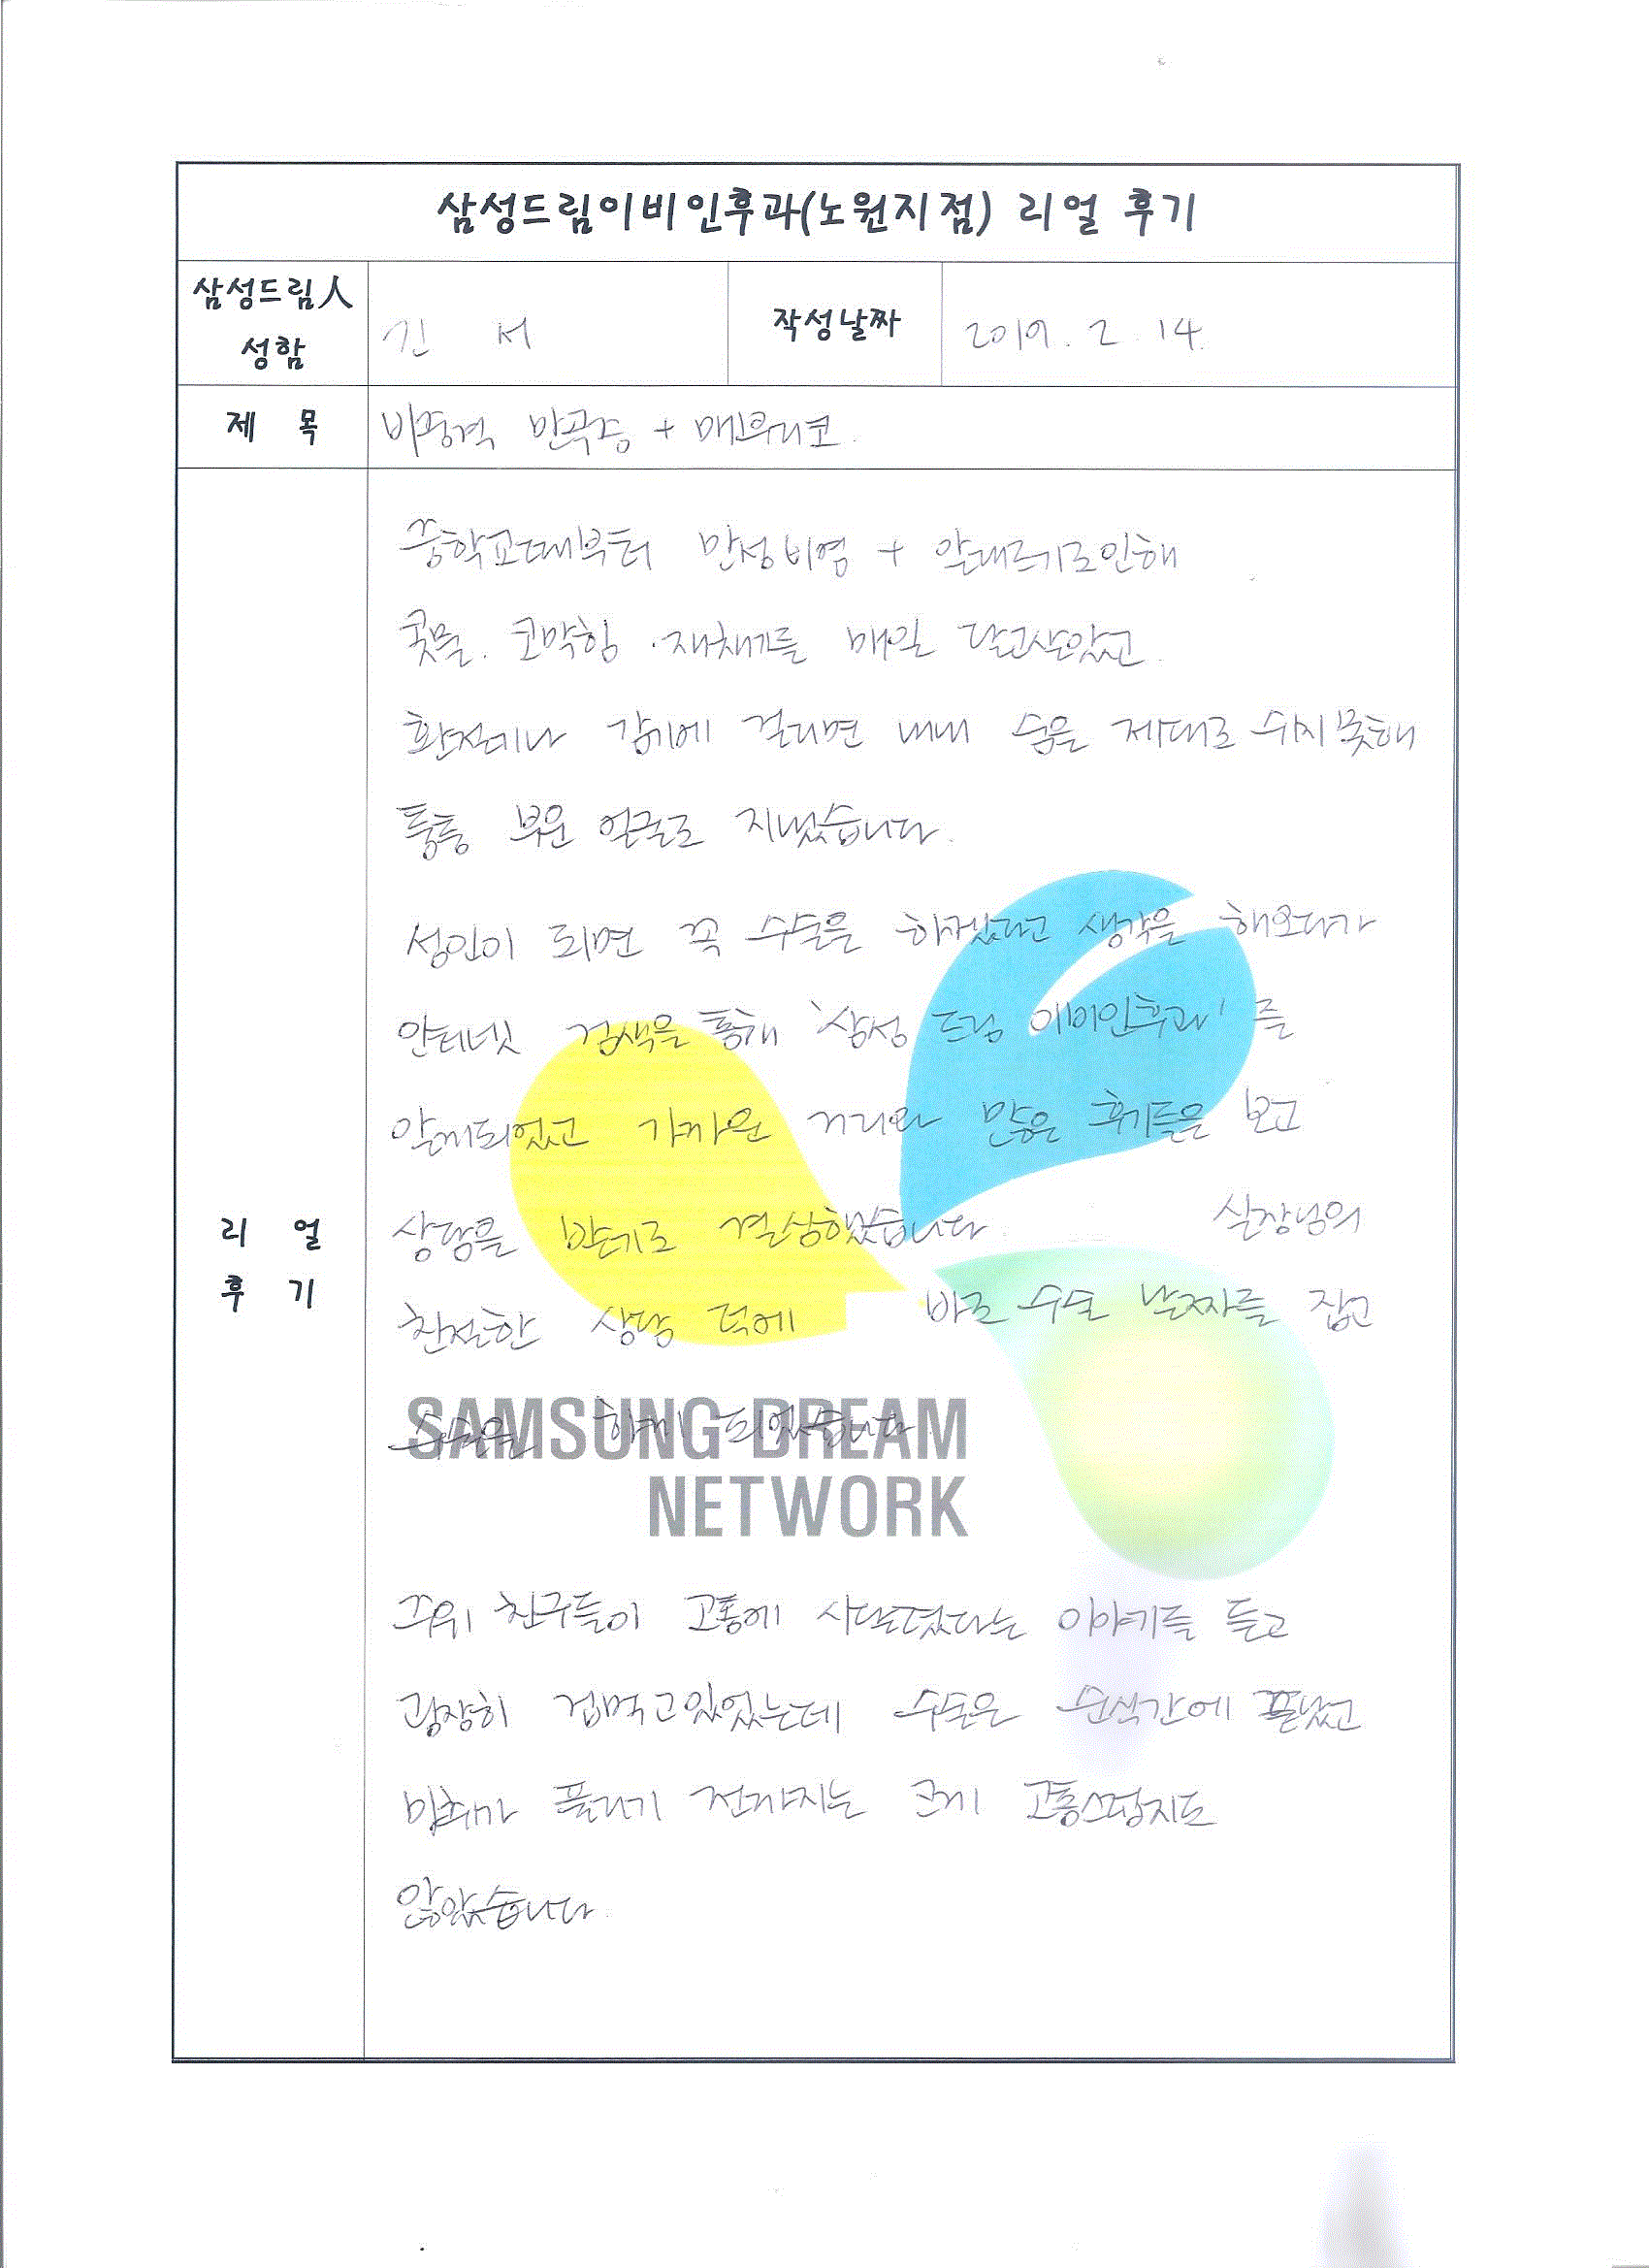 삼성드림이비인후과(노원지점) 리얼 후기
삼성드림人
성함
김 서
작성날짜
2019. 2. 14.
제 목
비중격 만곡증 + 매부리코.
리 얼
후 기
중학교때부터 만성비염 + 알래르기로인해
콧물. 코막힘. 재채기를 매일 달고살았고.
환절기나 감기에 걸리면 내내 숨을 제대로 쉬지못해
퉁퉁 부은 얼굴로 지냈습니다.
성인이 되면 꼭 수술을 하겠다고 생각을 해오다가
인터넷 검색을 통해 '삼성 드림 이비인후과' 를
알게되었고 가까운 거리와 많은 후기들을 보고
상담을 받기로 결심했습니다. 실장님의
친절한 상담 덕에 바로 수술 날짜를 잡고
수술을 하게 되었습니다.
SAMSUNG DREAM
NETWORK
주위 친구들이 고통에 시달렸다는 이야기를 듣고
굉장히 겁먹고있었는데 수술은 순식간에 끝났고
마취가 풀리기 전까지는 크게 고통스럽지도
않았습니다.